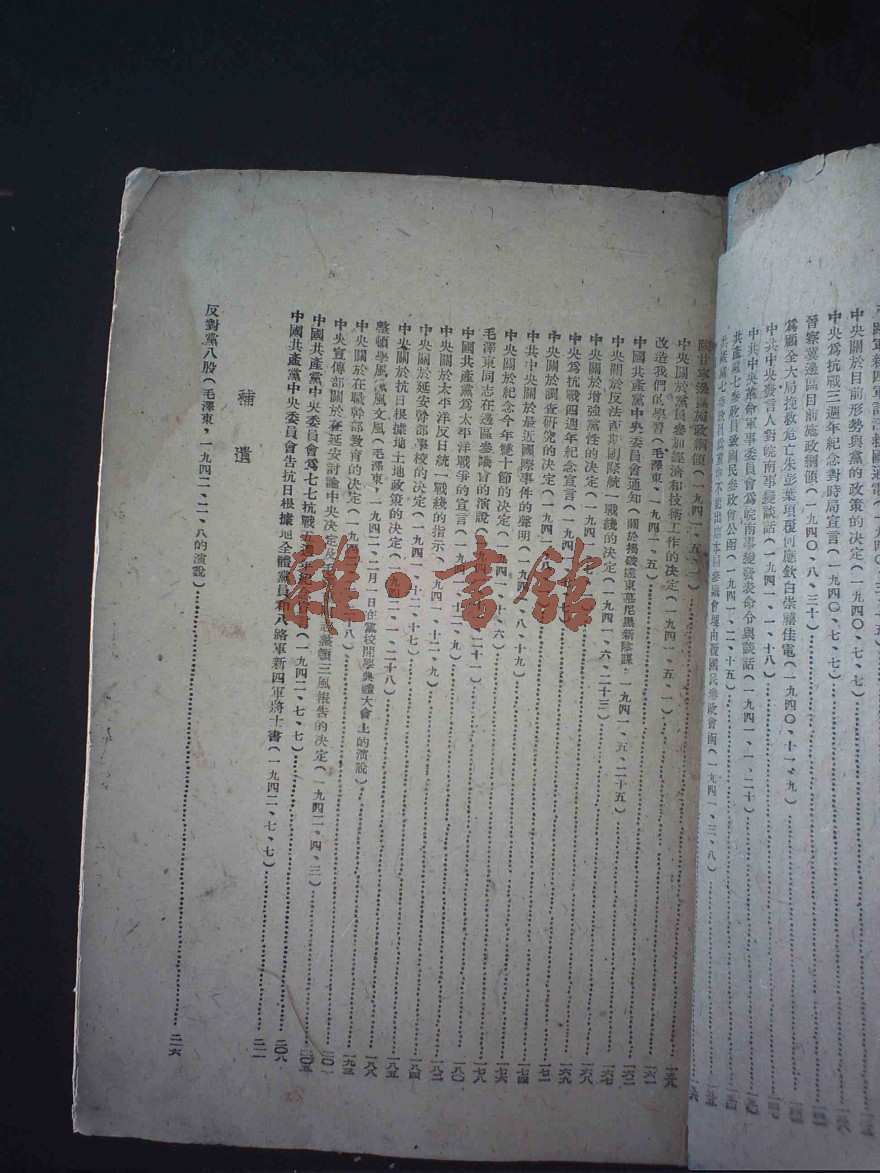 路軍新四軍討汪救國通電(
中央關於目前形勢與黨的政策的决定(一九四〇、七、七)
中央爲抗戰三週年紀念對時局宣言(一九四〇、七、七)
晉察冀邊區目前施政綱領(一九四〇、八、三十)
爲顧全大局挽救危亡朱彭葉項覆何應欽白崇禧佳電(一九四〇、十一、九)
中共中央發言人對皖南事變談話(一九四一、一、十八)
中共中央革命軍事委員會爲皖南事變發表命令與談話(一九四一、一、二十)
共產黨七參政員致國民參政會公函(一九四一、二、十五)
參議會理由覆國民參政會函(一九四一、三、八)
陝甘寧邊區施政綱領(一九四一、五、一)
中央關於黨員參加經濟和技術工作的决定(一九四一、五、一)……一五九
改造我們的學習(毛澤東、一九四一、五)……一六一
中國共產黨中央委員會通知(關於揭破遠東慕尼黑新陰謀、一九四一、五、二十五)……一六二
中央關於反法西斯國際統一戰綫的决定(一九四一、六、二十三)……一六七
中央關於增強黨性的决定(一九四一、七、……一六八
中央爲抗戰四週年紀念宣言(一九四一、七、七)……一六九
中央關於調查研究的决定(一九四一、八、……一七一
中共中央關於最近國際事件的聲明(一九四一、八、十九)……一七四
中央關於紀念今年雙十節的决定(一九四一、十、六)……一七六
毛澤東同志在邊區參議會的演說(一九四一、十一、二十一)……一七八
中國共產黨爲太平洋戰爭的宣言(一九四一、十二、九)……一八〇
中央關於太平洋反日統一戰綫的指示(一九四一、十二、九)……一八二
中央關於延安幹部學校的决定(一九四一、十二、十七)……一八四
中央關於抗日根據地土地政策的决定(一九四二、一、二十八)……一八五
整頓學風黨風文風(毛澤東、一九四二、二月一日在黨校開學典禮大會上的演說)……一八八
中央關於在職幹部教育的决定(一九四 八)……一九三
中央宣傳部關於在延安討論中央决定及毛 志整頓三風報告的决定(一九四二、四、三)……二〇一
中國共產黨中央委員會爲七七抗戰五週年紀念宣言(一九四二、七、七)……二〇五
中國共產黨中央委員會告抗日根據地全體黨員和八路軍新四軍將士書(一九四二、七、七)……二〇八
……二一一
補遺
反對黨八股(毛澤東、一九四二、二、八的演說)……二一六
雜·書館